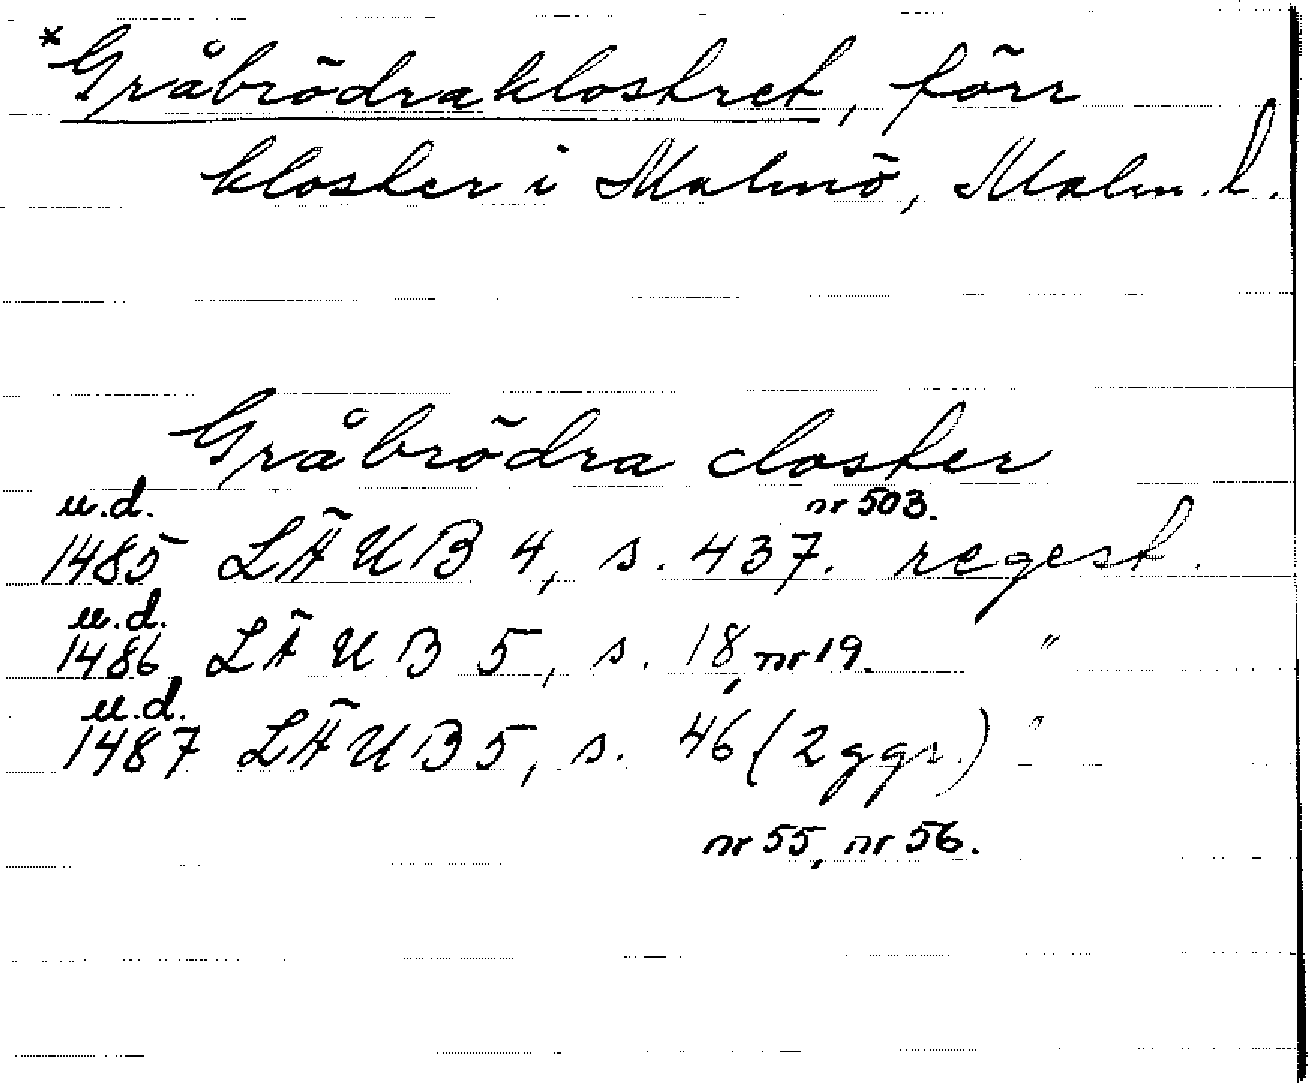 *Gråbrödraklostret, förr
kloster i Malmö, Malm. l.
Gråbrödra closter
u.d. nr 503.
1485 LÄUB 4, s. 437. regest.
u.d.
1486 LÄUB 5, s. 18, nr 19. "
u.d.
1487 LÄUB 5, s. 46 (2 ggr.) "
nr 55, nr 56.